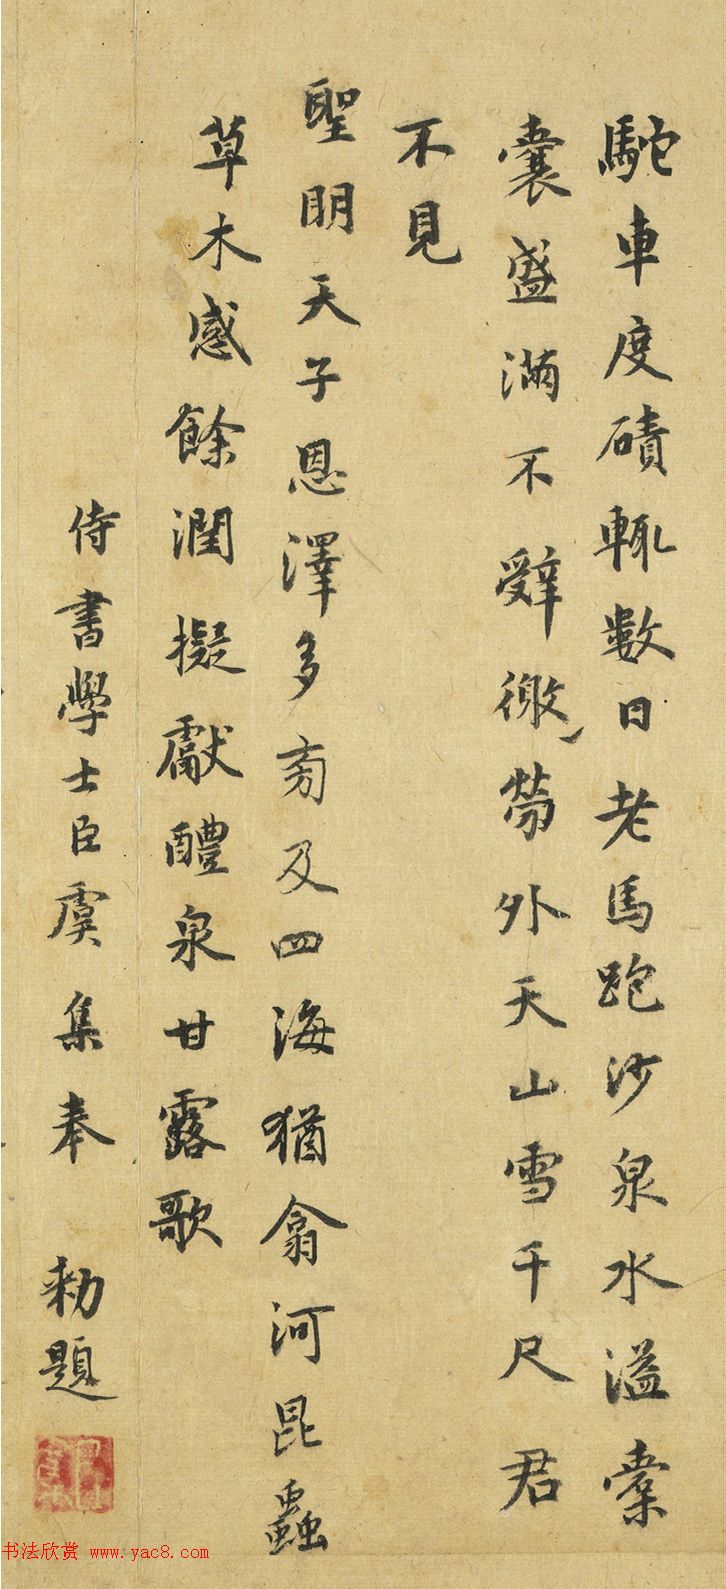 駝車度磧輒數日老馬跑沙泉水溢橐
囊盛滿不辭徼勞外天山雪千尺君
不見
聖明天子恩澤多旁及四海猶翕河昆蟲
草木感餘潤擬獻醴泉甘露歌
侍書學士臣虞集奉 勑題
书法欣赏 www.yac8.com